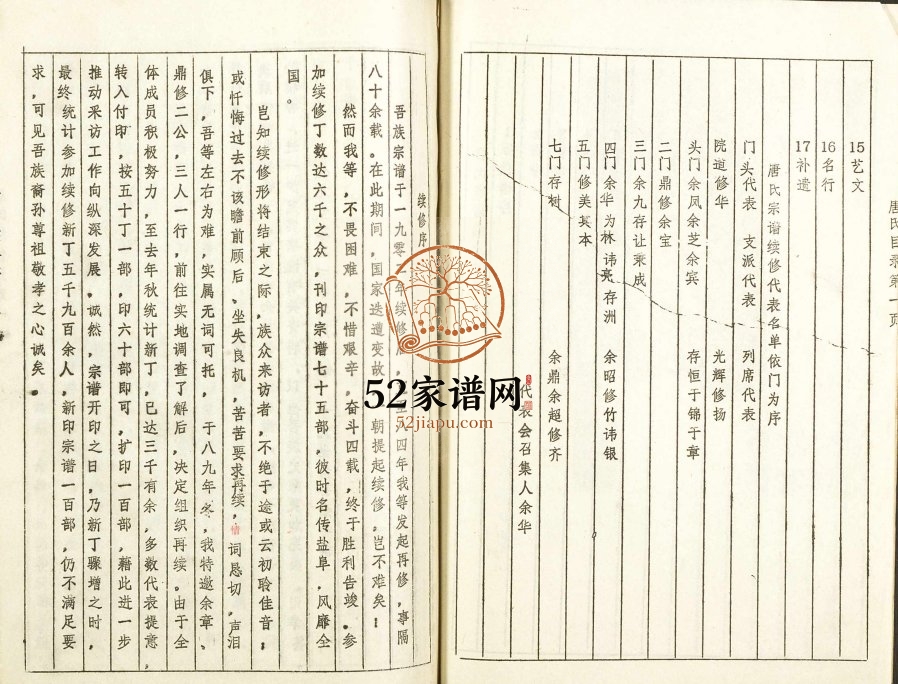 唐氏目录第一页
15艺文
16名行
17补遗
唐氏宗谱续修代表名单依门为序
门头代表 支派代表 列席代表
院道修华 光辉修扬
头门余凤余芝余宾 存恒于锦于章
二门鼎修余宝
三门余九存让乘成
四门余华为林讳亮存洲 余昭修竹讳银
五门修美其本
七门存树 余鼎余超修齐
代表会召集人余华
续修序
吾族宗谱于一九零 年续修 四年我等发起再修，事隔
八十余载。在此期间，国家迭遭变故 朝提起续修，岂不难矣！
然而我等，不畏困难，不惜艰辛，奋斗四载，终于胜利告竣。参
加续修丁数达六千之众，刊印宗谱七十五部，彼时名传盐阜，风靡全
国。
岂知续修形将结束之际，族众来访者，不绝于途或云初聆佳音；
或忏悔过去不该瞻前顾后、坐失良机，苦苦要求再续，情词恳切，声泪
俱下，吾等左右为难，实属无词可托， 于八九年冬，我特邀余章、
鼎修二公，三人一行，前往实地调查了解后，决定组织再续。由于全
体成员积极努力，至去年秋统计新丁，已达三千有余，多数代表提意，
转入付印，按五十丁一部，印六十部即可，扩印一百部，藉此进一步
推动采访工作向纵深发展。诚然，宗谱开印之日，乃新丁骤增之时，
最终统计参加续修新丁五千九百余人，新印宗谱一百部，仍不满足要
求，可见吾族裔孙尊祖敬孝之心诚矣。
52家谱网
52jiapu.com